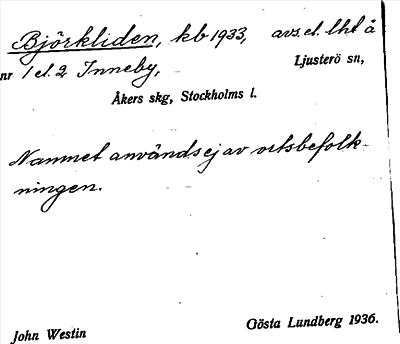 Björkliden, kb 1933, avs. el. lht å
nr 1 el. 2 Inneby, Ljusterö sn,
Åkers skg, Stockholms l.
Namnet användes ej av ortsbefolk-
ningen.
Gösta Lundberg 1936.
John Westin